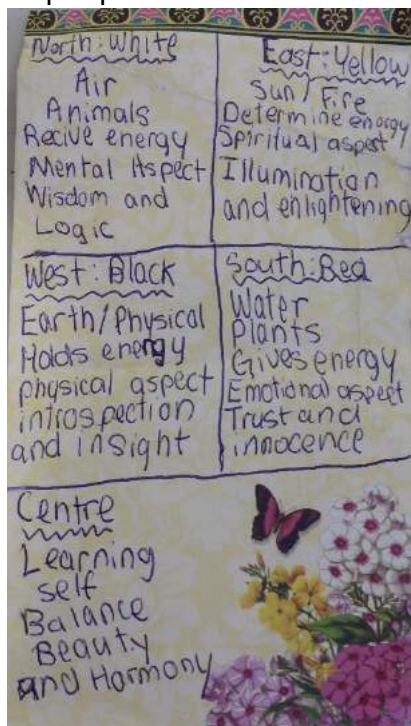 North: White
Air
Animals
Recive energy
Mental Aspect
Wisdom and
Logic
East: Yellow
Sun / Fire
Determine energy
Spiritual aspest
Illumination
and enlightening
West: Black
Earth / Physical
Holds energy
physical aspect
introspection
and insight
South: Red
Water
Plants
Gives energy
Emotional aspect
Trust and
innocence
Centre
Learning
self
Balance
Beauty
and Harmony